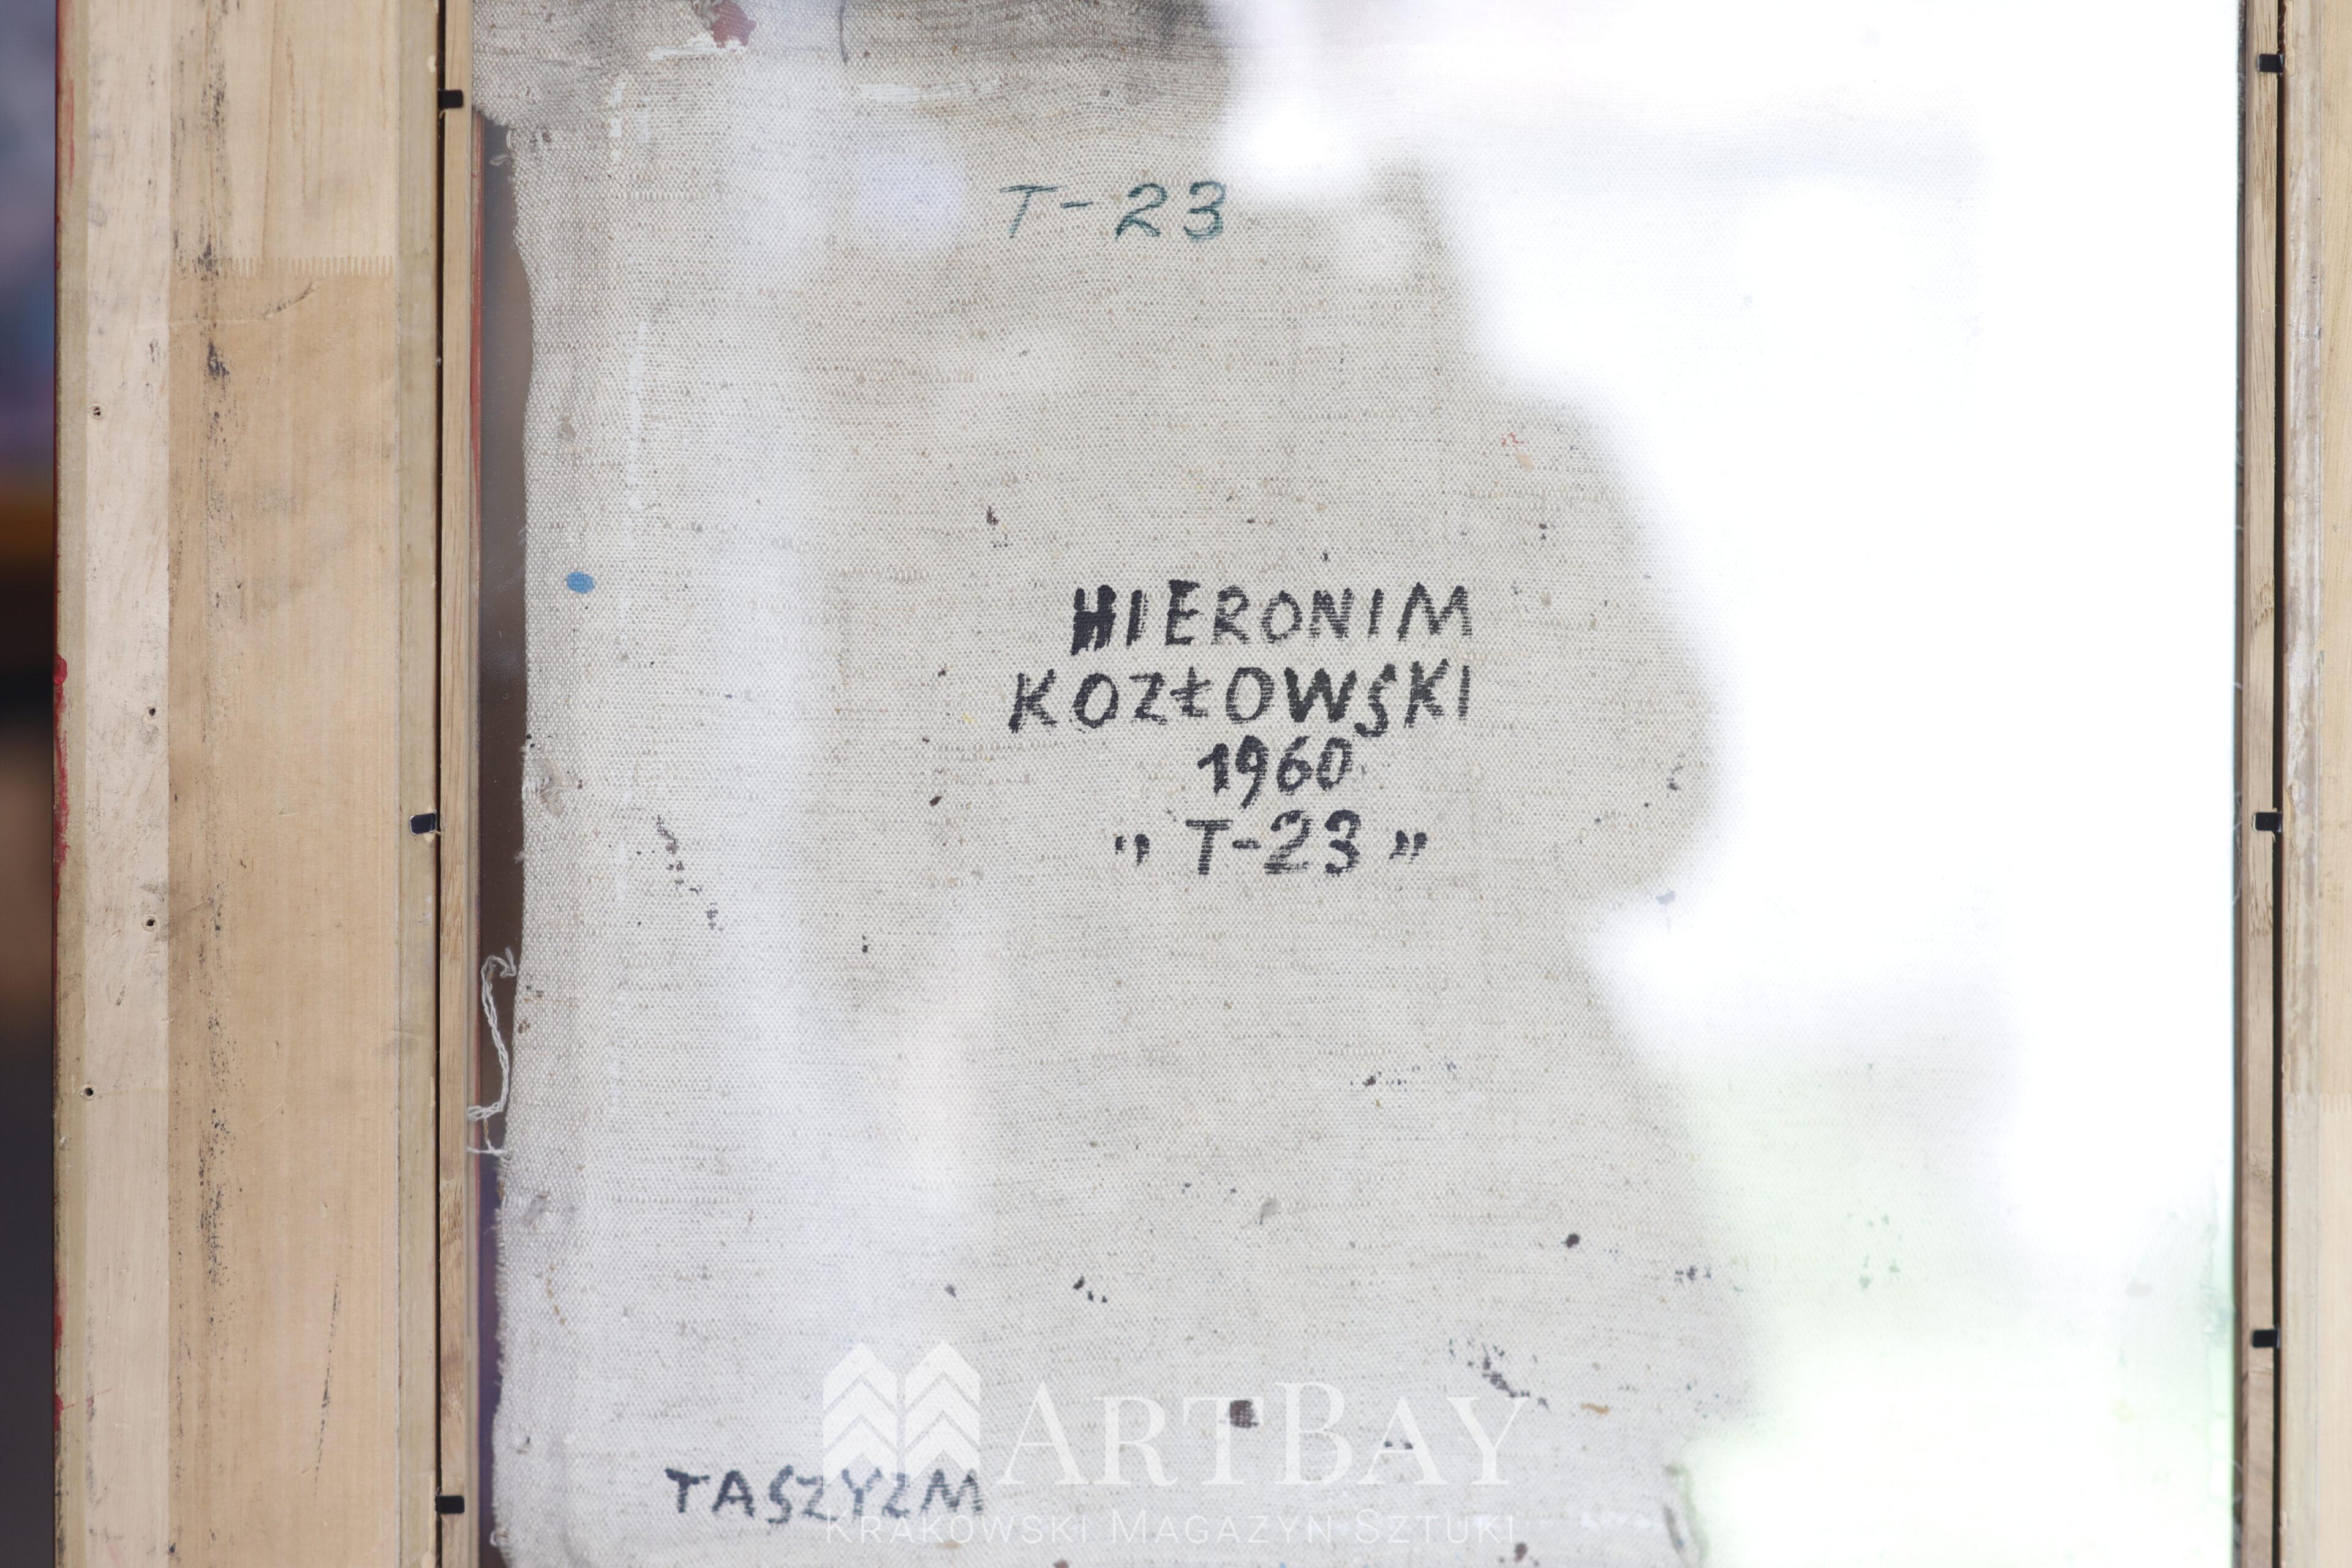 T-23
HIERONIM
KOZŁOWSKI
1960
„ T-23 ”
ARTBAY
TASZYZM
KRAKOWSKI MAGAZYN SZTUKI